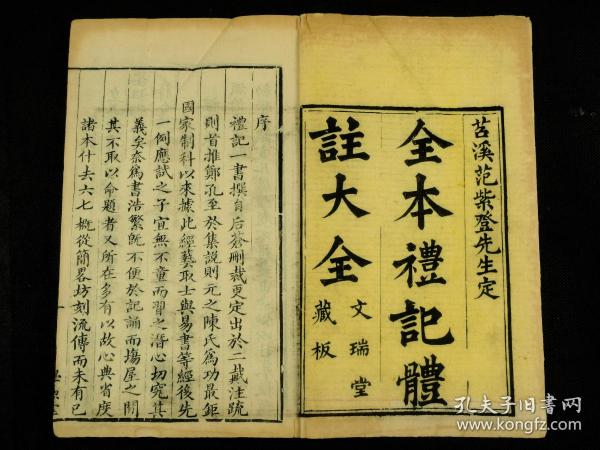 苕溪范紫登先生定
全本禮記體
註大全
文瑞堂
藏板
序
禮記一書撰自后蒼刪裁更定出於二戴注疏
則首推鄭孔至於集說則元之陳氏為功最鉅
國家制科以來據此經藝取士與易書等經後先
一例應試之子宜無不童而習之潛心切究其
義矣柰為書浩繁旣不便於記誦而塲屋之間
其不取以命題者又所在多有以故心典省度
諸本什去六七概從簡畧坊刻流傳而未有已
一
孔夫子旧书网
www.kongfz.com